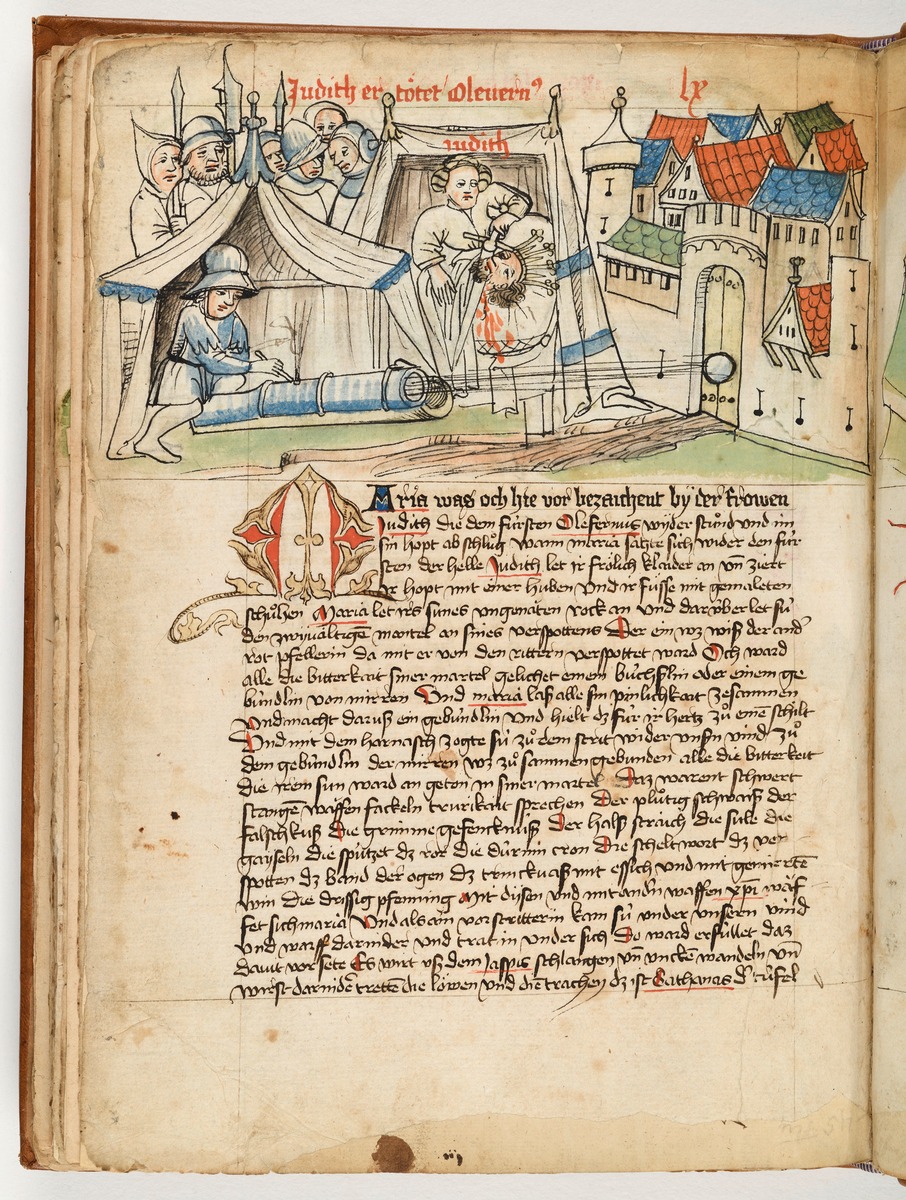 Judith er tötet Olevern⁹
lx
Judith
Maria was och hie vor bezaichent by der frowen
Judith die dem fürsten Olefernus wyder stuͦnd und im
sin hopt ab schluͦg wann maria satzte sich wider den für
sten der helle Judith let ir frölich klaider an vn̄ ziert
ir hopt mit einer huben Und ir fuͤsse mit gemaleten
schuͦhen Maria let irs sunes ungonäten rock an und darüber let sü
den zwyvältigē mantel an sines verspottens Der ein wz wiß der and
rot pfellerin da mit er von den rittern verspottet ward Och ward
alle die bitterkait siner martel gelichet einem büchslin oder einem ge
bündlin von mirren Und maria laß alle sin pinlichkait zesammen
Und macht daruß ein gebündlin Und hielt dz für ir hertz zuͦ einē schilt
Und mit dem harnasch zogte sü zuͦ dem strit wider unsn vind zuͦ
dem gebündlin der mirren wz zuͦ samnen gebunden alle die bitterkeit
die irem sun ward an geton in siner martel Daz warent schwert
stangē waffen fackeln trurikait sprechen Der pluͦtig schwaiß der
falsch kuß Die grimme gefencknuß Der halß straich die sule die
gayseln die spützet dz ror die dürnin cron Die schelt wort dz ver
spotten dz band der ogen dz trinckvaß mit essich und mit gemierte
win die drissig pfenning Mit disen und mit andn waffen xp̄i waf
fet sich maria Und als ain vorstritterin kam sü under unsern vind
Und warff dar nider und trat in under sich Do ward erfüllet daz
davit vor sete Es wirt uß dem Jaspis schlangen vn̄ uncken wandeln vn̄
wirst darnidē trettē die löwen und die trachen dz ist Sathanas d' tüfel
iij